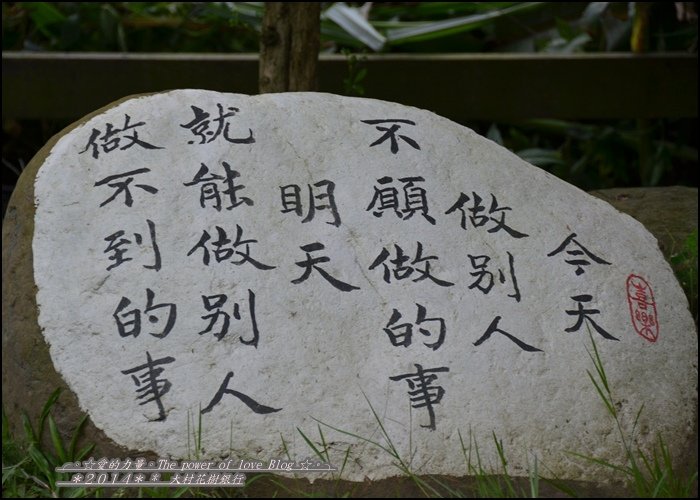 今天
做別人
不願做的事
明天
就能做別人
做不到的事
喜樂
☆愛的力量。The power of love Blog☆
*2014* * 大村花樹銀行